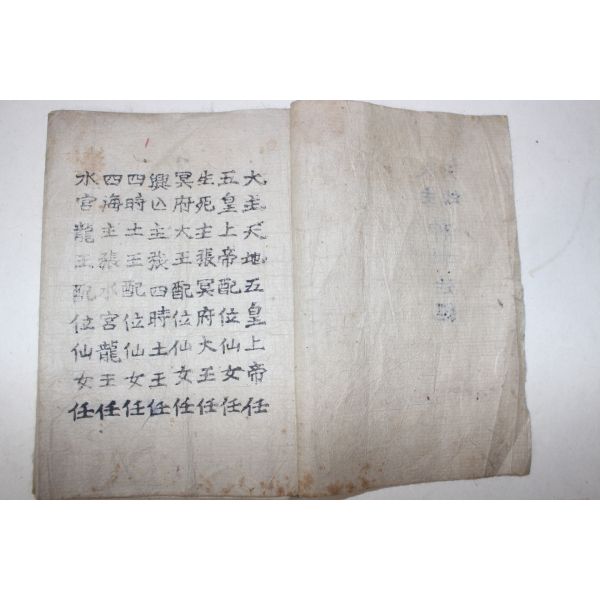 大主天地五皇上帝任
五皇上帝配位仙女任
生死主張冥府大王任
冥府大王配位仙女任
興亡主張四時土王任
四時土王配位仙女任
四海主張水宮龍王任
水宮龍王配位仙女任